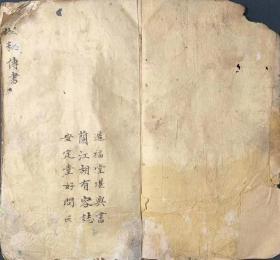 秘傳書
造福堂堪輿書
蘭江胡有容誌
安定堂好問氏